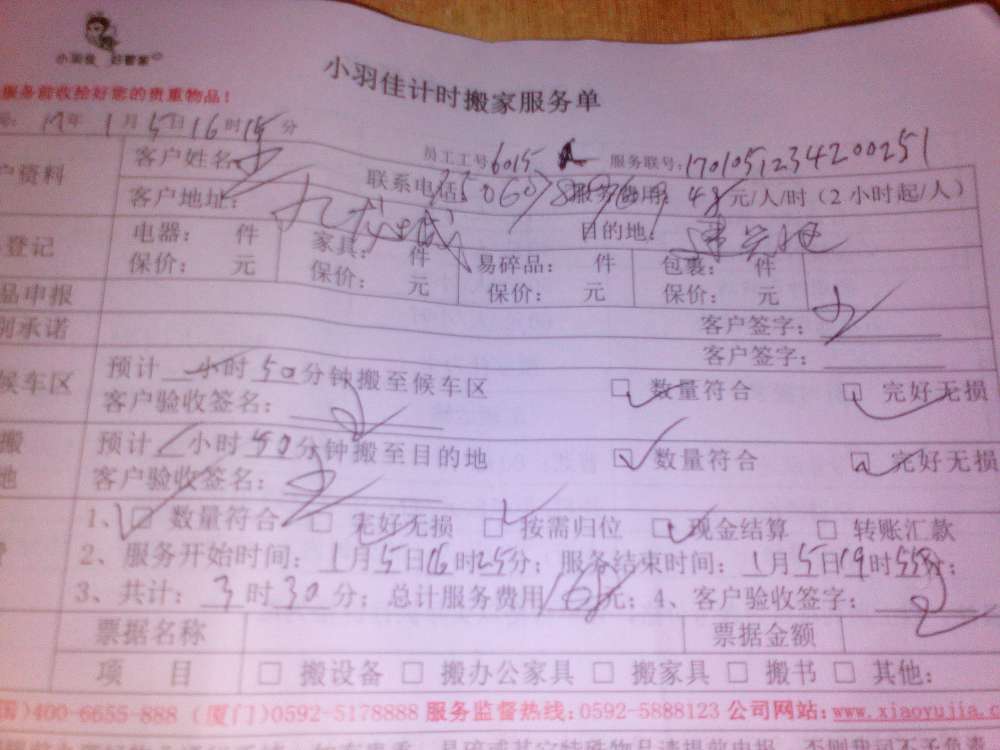 小羽佳 好管家
小羽佳计时搬家服务单
服务前收拾好您的贵重物品！
17年1月5日16时15分
员工工号:6015 服务联号:1701051234200251
户资料 客户姓名: 联系电话: 服务费用: 48元/人/时（2小时起/人）
客户地址: 九龙城 目的地:
登记 电器: 件 家具: 件 易碎品: 件 包装: 件
保价: 元 保价: 元 保价: 元 保价: 元
品申报 客户签字:
别承诺 客户签字:
候车区 预计 小时50分钟搬至候车区 数量符合 完好无损
客户验收签名:
搬 预计 小时50分钟搬至目的地 数量符合 完好无损
地 客户验收签名:
1、 数量符合 完好无损 按需归位 现金结算 转账汇款
2、服务开始时间: 1月5日16时25分; 服务结束时间: 1月5日19时55分;
3、共计: 3时30分; 总计服务费用168元; 4、客户验收签字:
票据名称 票据金额
项 目 搬设备 搬办公家具 搬家具 搬书 其他:
国)400-6655-888 (厦门)0592-5178888 服务监督热线:0592-5888123 公司网站:www.xiaoyujia.c